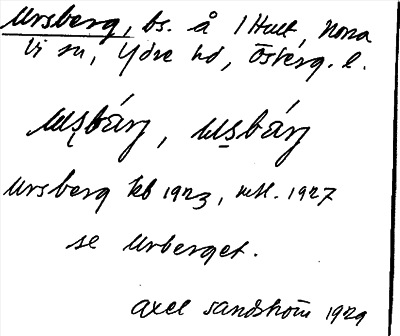 Ursberg, bs. å 1 Hult, Norra
Vi sn, Ydre hd, Österg. l.
uʂbárj, uʂbárj
Ursberg kb 1923, mtl. 1927
se Urberget.
Axel Sandström 1929